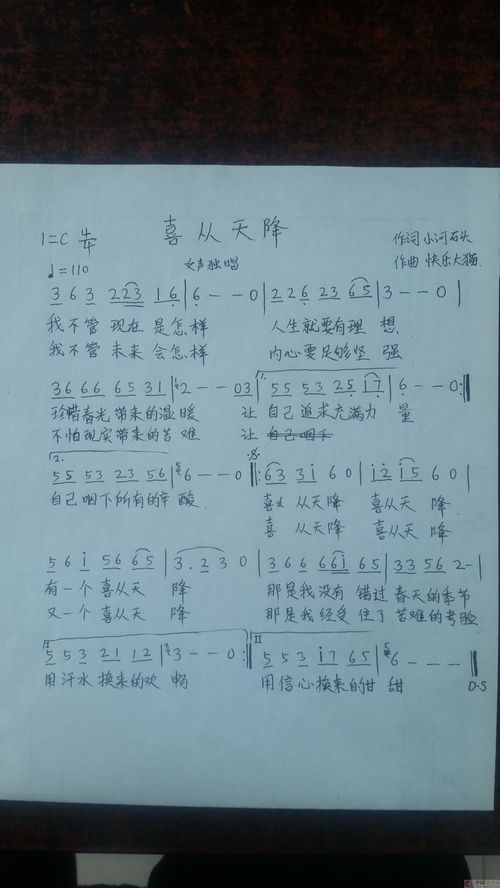 喜从天降
1=C 4/4
作词 小河石头
♩=110 女声独唱 作曲 快乐大猫.
3 6 3 2 2 3 1 6 | 6 - - 0 | 2 2 6 2 3 6 5 | 3 - - 0 |
我不管 现在 是怎样 人生就要有理 想
我不管 未来 会怎样 内心要足够坚 强
3 6 6 6 6 5 3 1 | 2 - - 0 3 | 1. 5 5 5 3 2 5 1 7 | 6 - - 0 :||
珍惜春光 带来的温 暖 让 自己 追求充满力 量
不怕现实带来的苦 难 让 自己咽下
2. 5 5 5 3 2 3 5 6 | 6 - - 0 ||: 6 3 3 i 6 0 | i 2 i 5 6 0 |
自己 咽下所有的辛 酸 喜 从天 降 喜从天 降
喜 从天 降 喜从天 降
5 6 i 5 6 6 5 | 3 . 2 3 0 | 3 6 6 6 6 i 6 5 | 3 3 5 6 2 - |
有一个 喜从天 降 那是我没有 错过 春天的季节
又一个 喜从天 降 那是我经受 住了 苦难的考验
I. 5 5 3 2 1 1 2 | 3 - - 0 :|| II 5 5 3 i 7 6 5 | 6 - - - ||
用汗水 换来的欢 畅 用信心换来的甘 甜 D.S